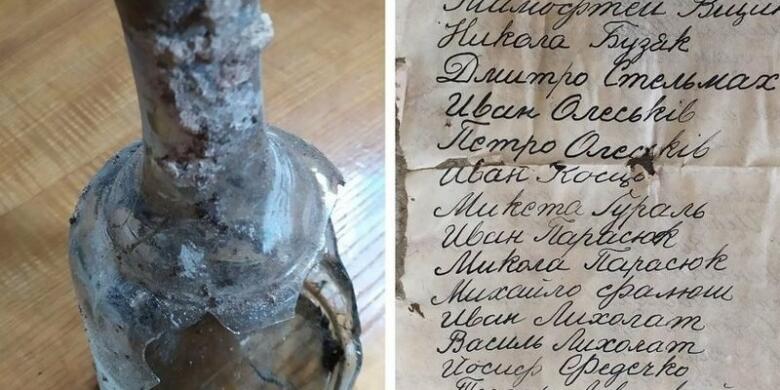 Никола Бузяк
Дмитро Стельмах
Иван Олеськів
Петро Олеськів
Иван
Микета Гураль
Иван Парасюк
Микола Парасюк
Михайло Фалюш
Иван Лихолат
Василь Лихолат
Йосиф Федечко